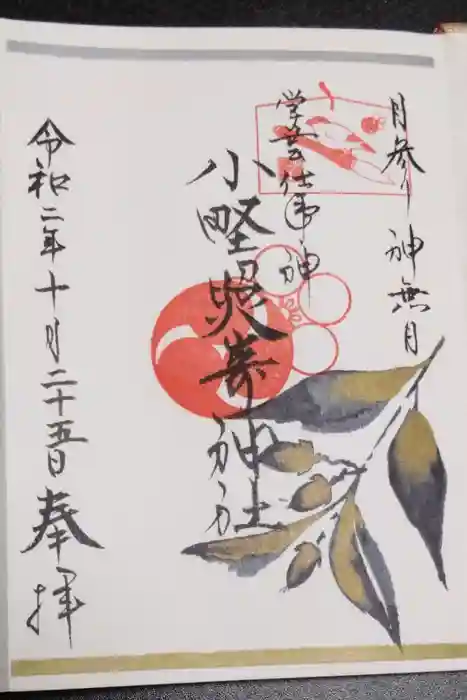 月参り 神無月
学芸仕事神
小野照崎神社
令和二年十月二十五日 奉拝